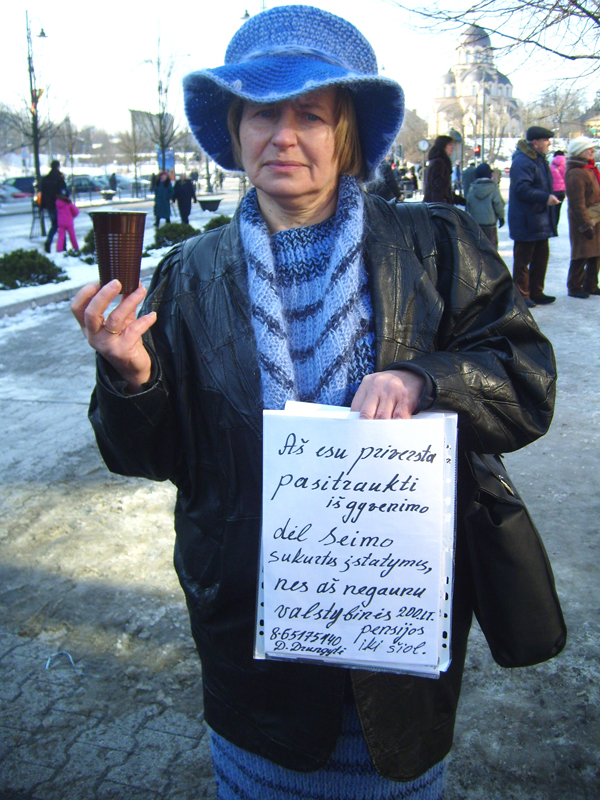 Aš esu priversta
pasitraukti
iš gyvenimo
dėl Seimo
sukurtus įstatymus,
nes aš negaunu
valstybinės 200Lt.
pensijos
iki šiol.
8-65175140
D. Drungyti